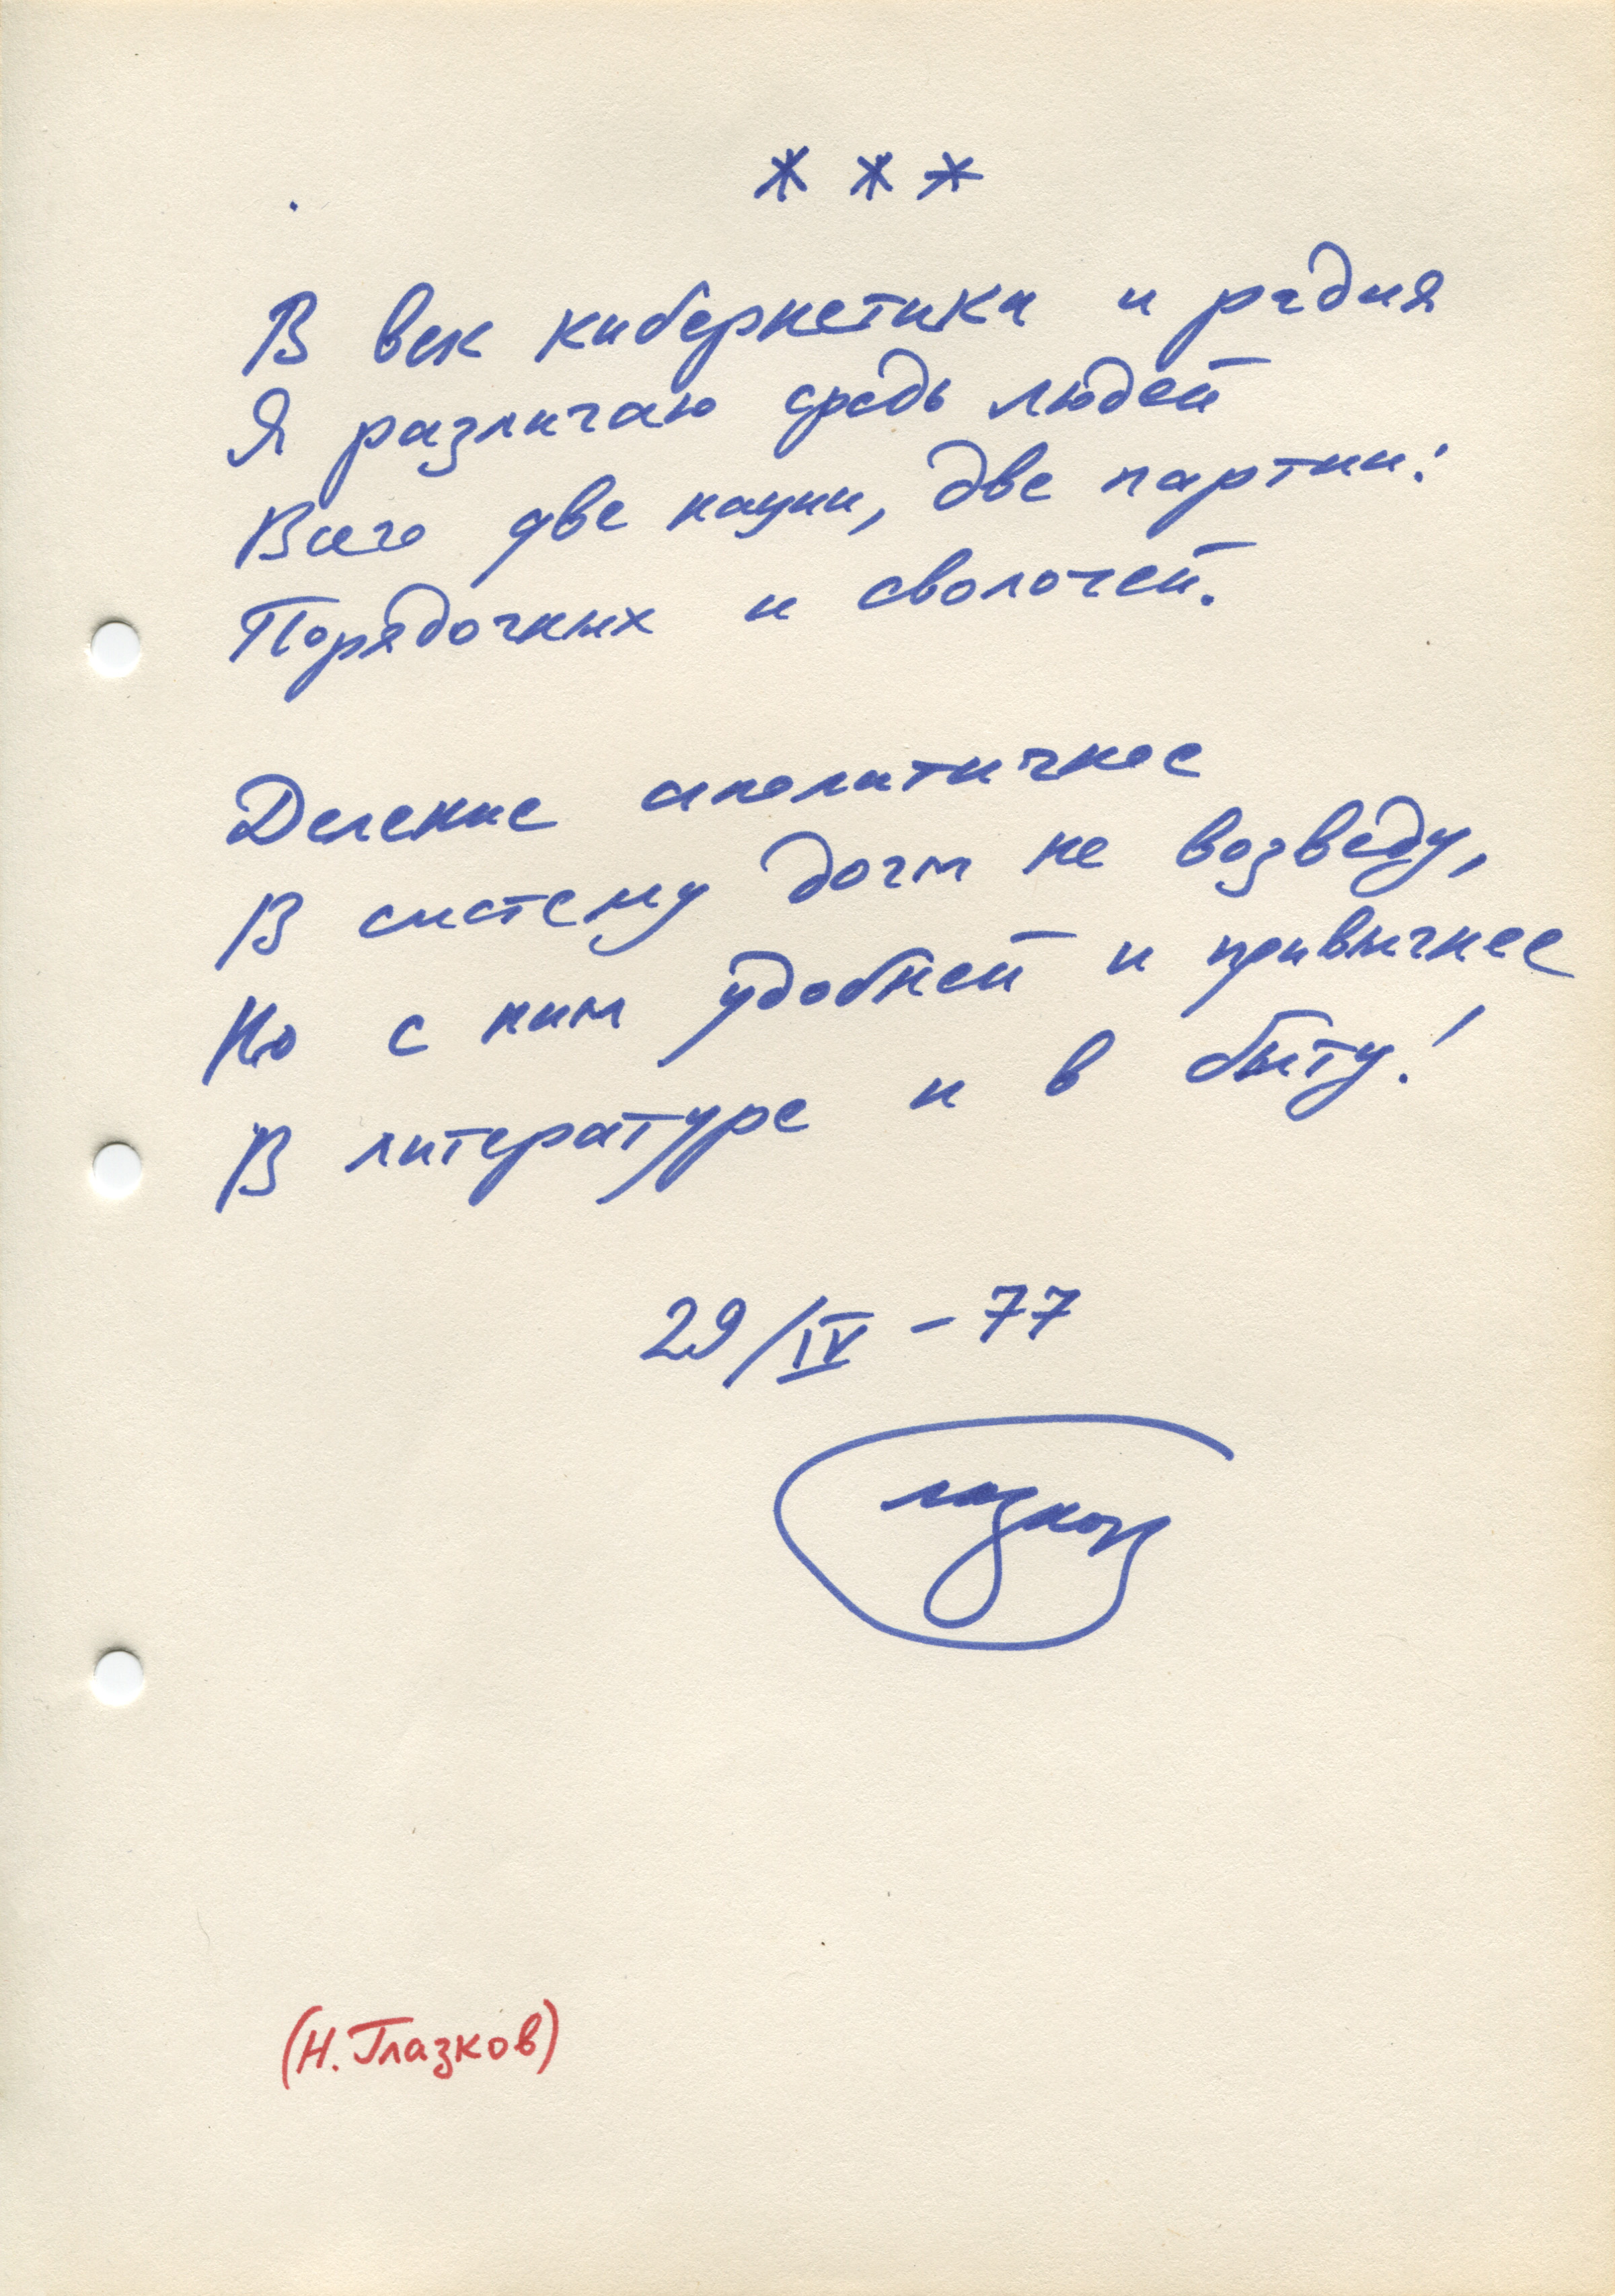 * * *
В век кибернетики и радия
Я различаю средь людей
Всего две нации, две партии:
Порядочных и сволочей.
Деление аполитичное
В систему догм не возведу,
Но с ним удобней и привычнее
В литературе и в быту!
29/IV - 77
Глазков
(Н. Глазков)